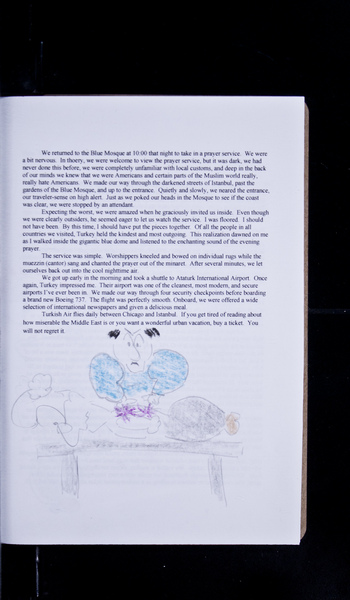 We returned to the Blue Mosque at 10:00 that night to take in a prayer service.  We were
a bit nervous.  In thoery, we were welcome to view the prayer service, but it was dark, we had
never done this before, we were completely unfamiliar with local customs, and deep in the back
of our minds we knew that we were Americans and certain parts of the Muslim world really,
really hate Americans.  We made our way through the darkened streets of Istanbul, past the
gardens of the Blue Mosque, and up to the entrance.  Quietly and slowly, we neared the entrance,
our traveler-sense on high alert.  Just as we poked our heads in the Mosque to see if the coast
was clear, we were stopped by an attendant.
Expecting the worst, we were amazed when he graciously invited us inside.  Even though
we were clearly outsiders, he seemed eager to let us watch the service.  I was floored.  I should
not have been.  By this time, I should have put the pieces together.  Of all the people in all
countries we visited, Turkey held the kindest and most outgoing.  This realization dawned on me
as I walked inside the gigantic blue dome and listened to the enchanting sound of the evening
prayer.
The service was simple.  Worshippers kneeled and bowed on individual rugs while the
muezzin (cantor) sang and chanted the prayer out of the minaret.  After several minutes, we let
ourselves back out into the cool nighttime air.
We got up early in the morning and took a shuttle to Ataturk International Airport.  Once
again, Turkey impressed me.  Their airport was one of the cleanest, most modern, and secure
airports I've ever been in.  We made our way through four security checkpoints before boarding
a brand new Boeing 737.  The flight was perfectly smooth.  Onboard, we were offered a wide
selection of international newspapers and given a delicious meal.
Turkish Air flies daily between Chicago and Istanbul.  If you get tired of reading about
how miserable the Middle East is or you want a wonderful urban vacation, buy a ticket.  You
will not regret it.